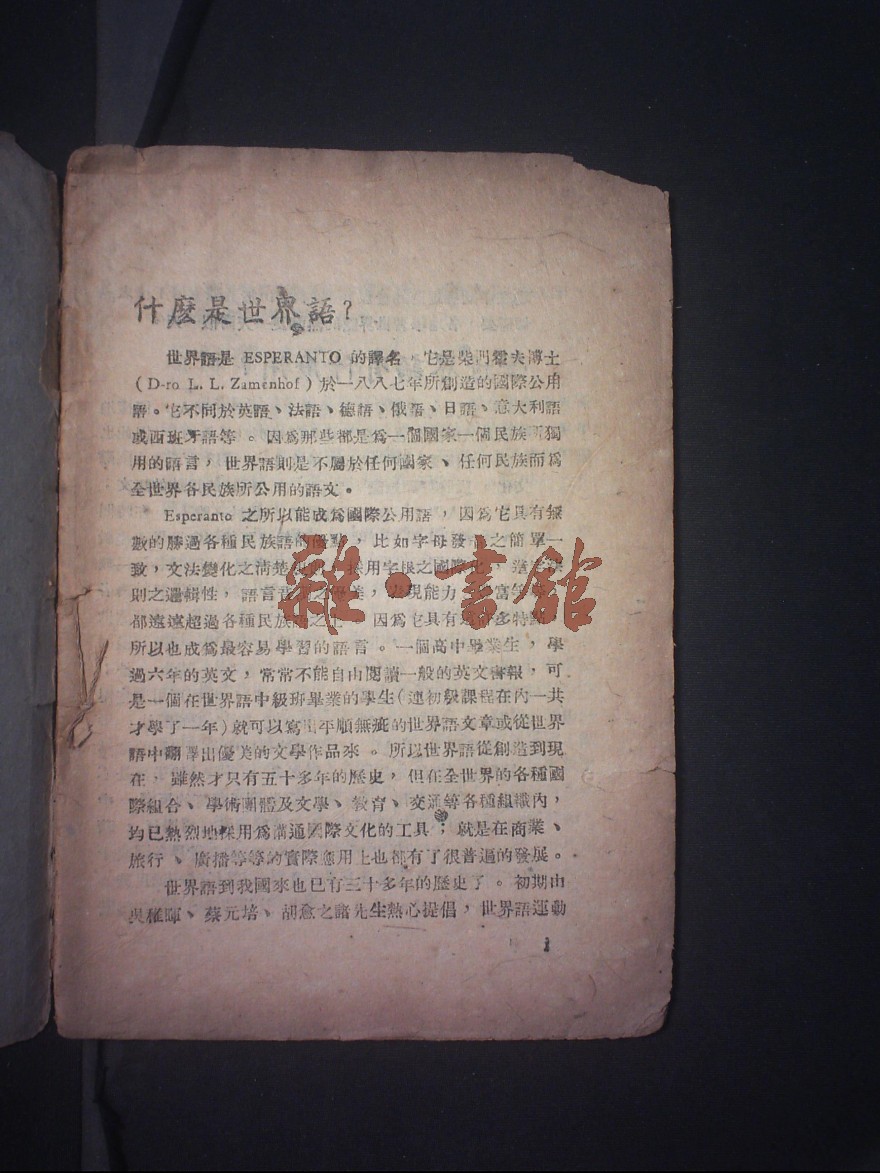 什麼是世界語？
世界語是 ESPERANTO 的譯名，它是柴門霍夫博士
（D-ro L. L. Zamenhof）於一八八七年所創造的國際公用
語。它不同於英語、法語、德語、俄語、日語、意大利語
或西班牙語等。因爲那些都是爲一個國家一個民族所獨
用的語言，世界語則是不屬於任何國家、任何民族而爲
全世界各民族所公用的語文。
Esperanto 之所以能成爲國際公用語，因爲它具有無
數的勝過各種民族語的優點，比如字母發之簡單一
致，文法變化之清楚採用字根之國際化，造
則之邏輯性，語言表現能力富等
都遠遠超過各種民族語之上因爲它具有這許多特點，
所以也成爲最容易學習的語言。一個高中畢業生，學
過六年的英文，常常不能自由閱讀一般的英文書報，可
是一個在世界語中級班畢業的學生（連初級課程在內一共
才學了一年）就可以寫出平順無疵的世界語文章或從世界
語中翻譯出優美的文學作品來。所以世界語從創造到現
在，雖然才只有五十多年的歷史，但在全世界的各種國
際組合、學術團體及文學、教育、交通等各種組織內，
均已熱烈地採用爲溝通國際文化的工具；就是在商業、
旅行、廣播等等的實際應用上也都有了很普遍的發展。
世界語到我國來也已有三十多年的歷史了。初期由
吳稚暉、蔡元培、胡愈之諸先生熱心提倡，世界語運動
1
雜·書館